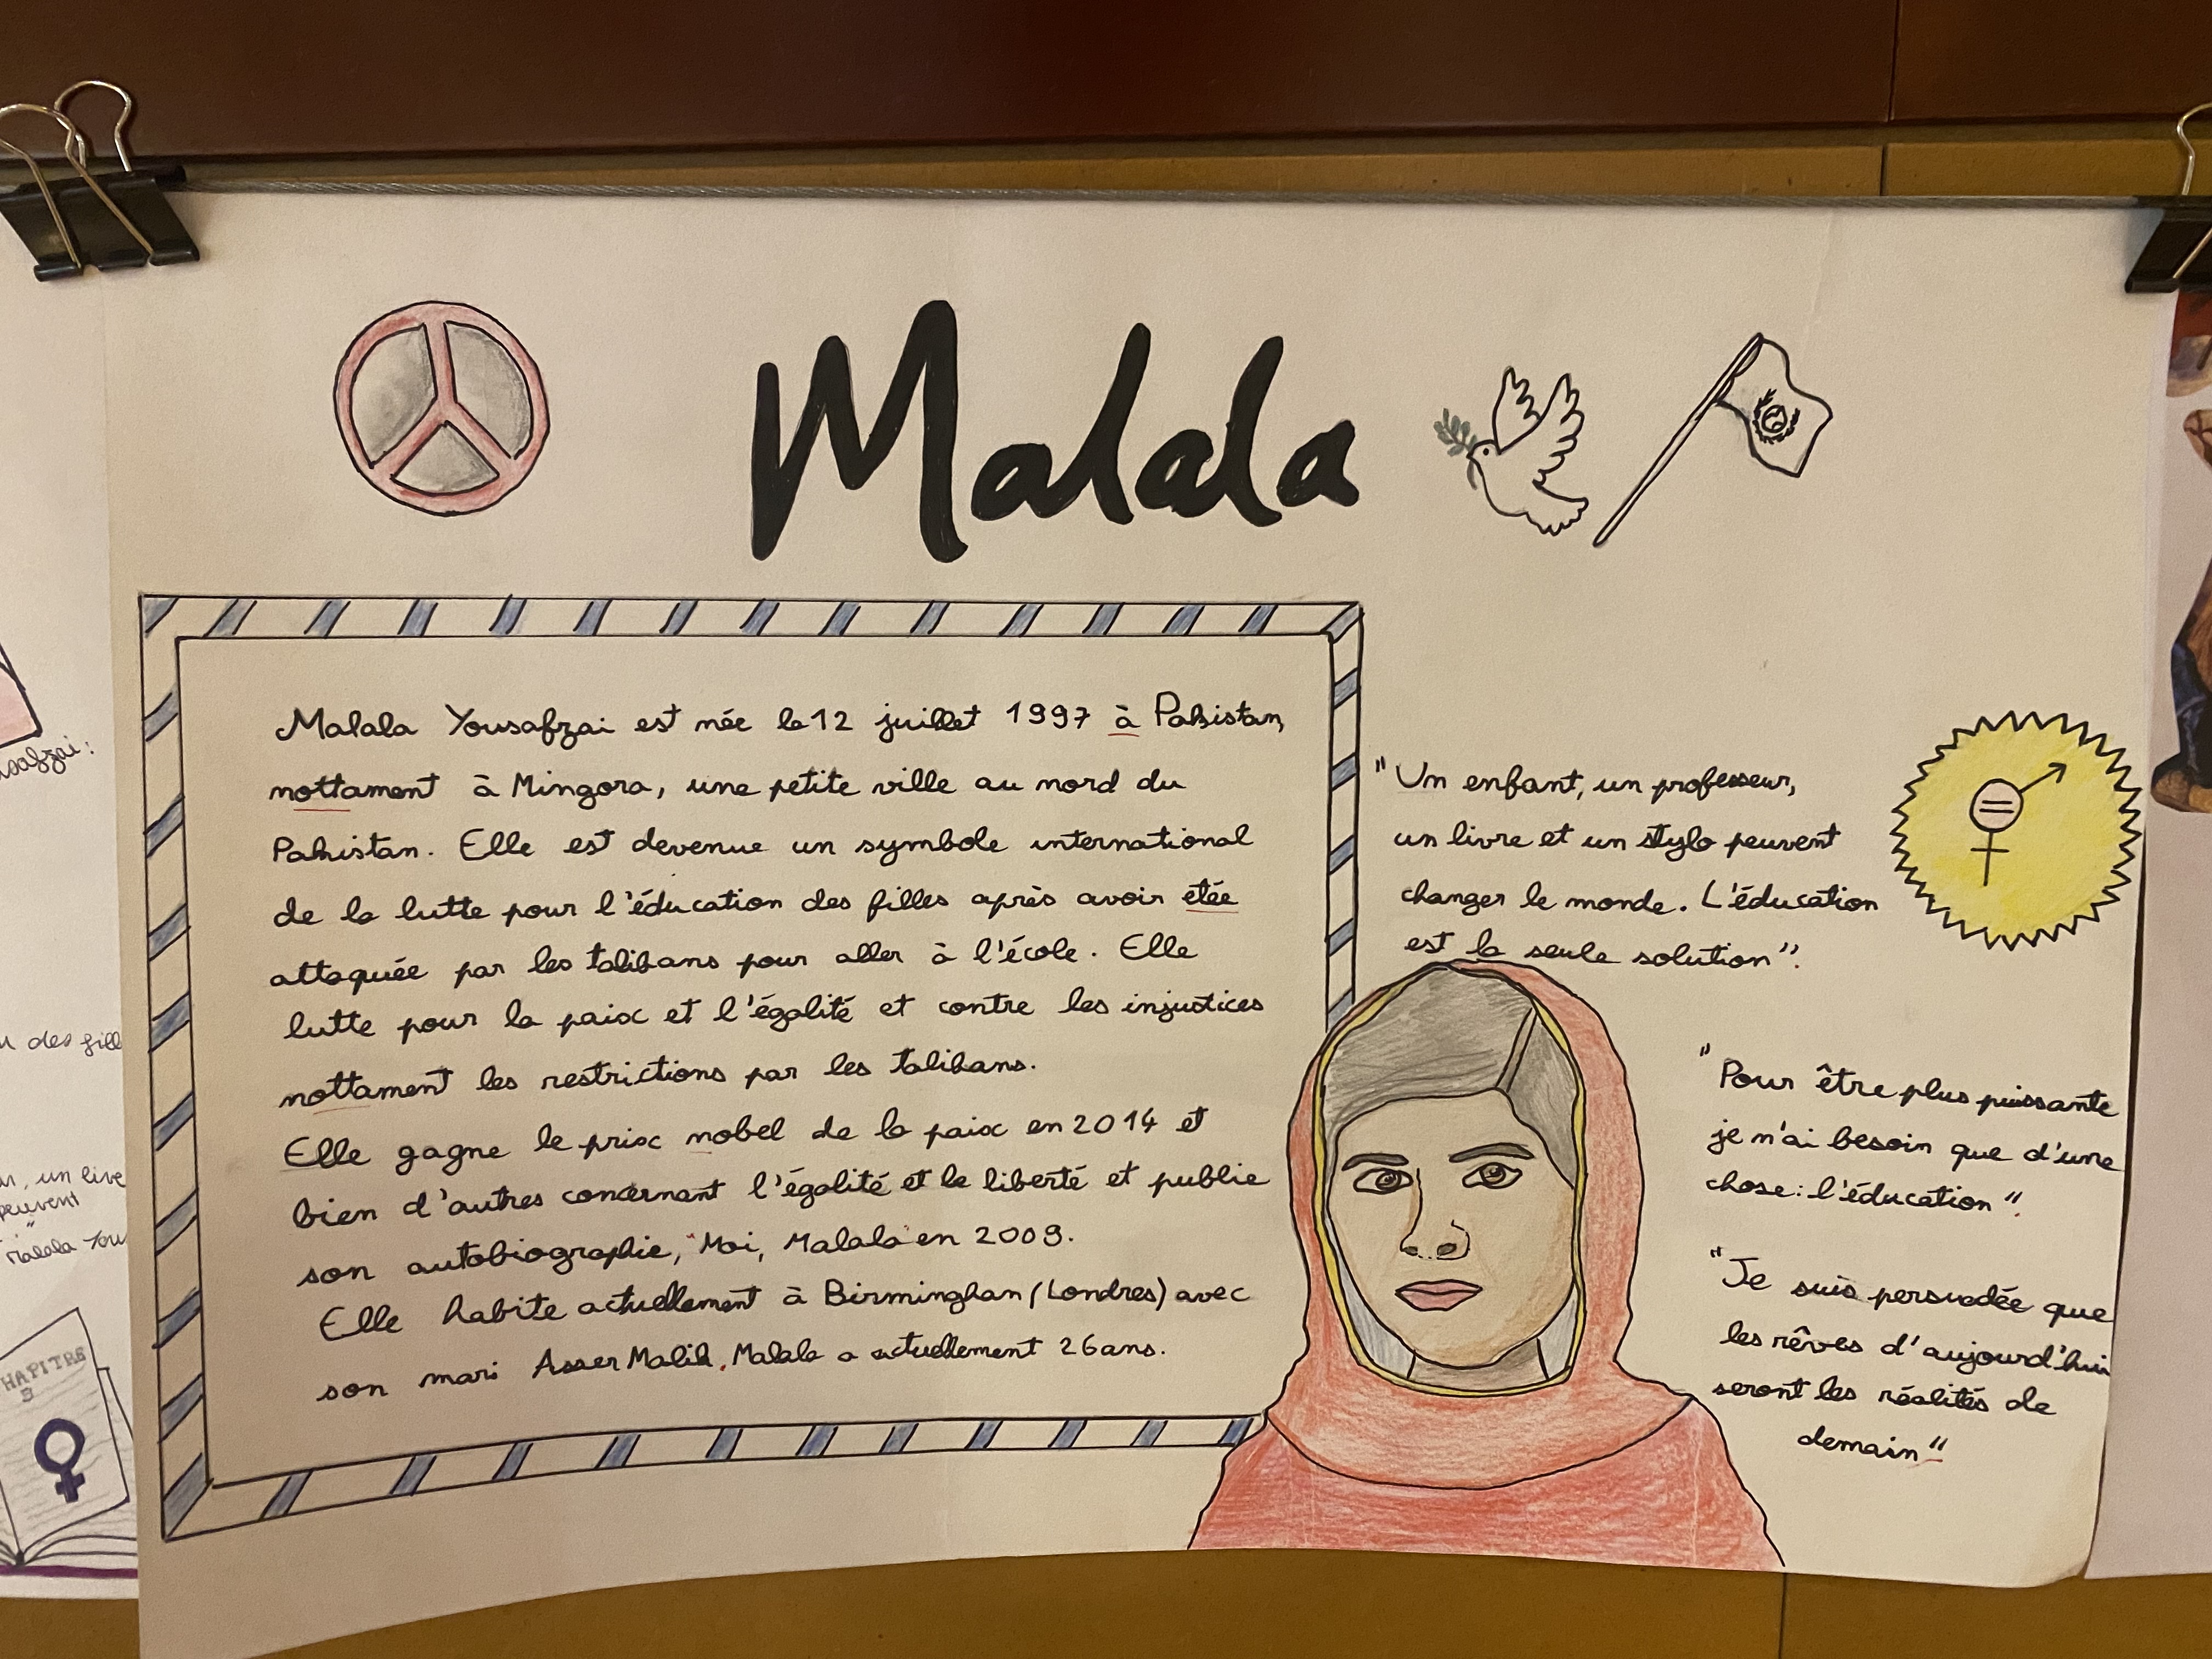 Malala
Malala Yousafzai est née le 12 juillet 1997 à Pakistan,
nottament à Mingora, une petite ville au nord du
Pakistan. Elle est devenue un symbole international
de la lutte pour l'éducation des filles après avoir etée
attaquée par les talibans pour aller à l'école. Elle
lutte pour la paix et l'égalité et contre les injustices
nottament les restrictions par les talibans.
Elle gagne le prix nobel de la paix en 2014 et
bien d'autres concernant l'égalité et la liberté et publie
son autobiographie, "Moi, Malala" en 2009.
Elle habite actuellement à Birminghan (Londres) avec
son mari Asser Malik. Malala a actuellement 26 ans.
"Un enfant, un professeur,
un livre et un stylo peuvent
changer le monde. L'éducation
est la seule solution".
"Pour être plus puissante
je n'ai besoin que d'une
chose: l'éducation".
"Je suis persuadée que
les rêves d'aujourd'hui
seront les réalités de
demain"
usafzai:
des fill
, un live
peuvent
"
Malala You
HAPITRE
3